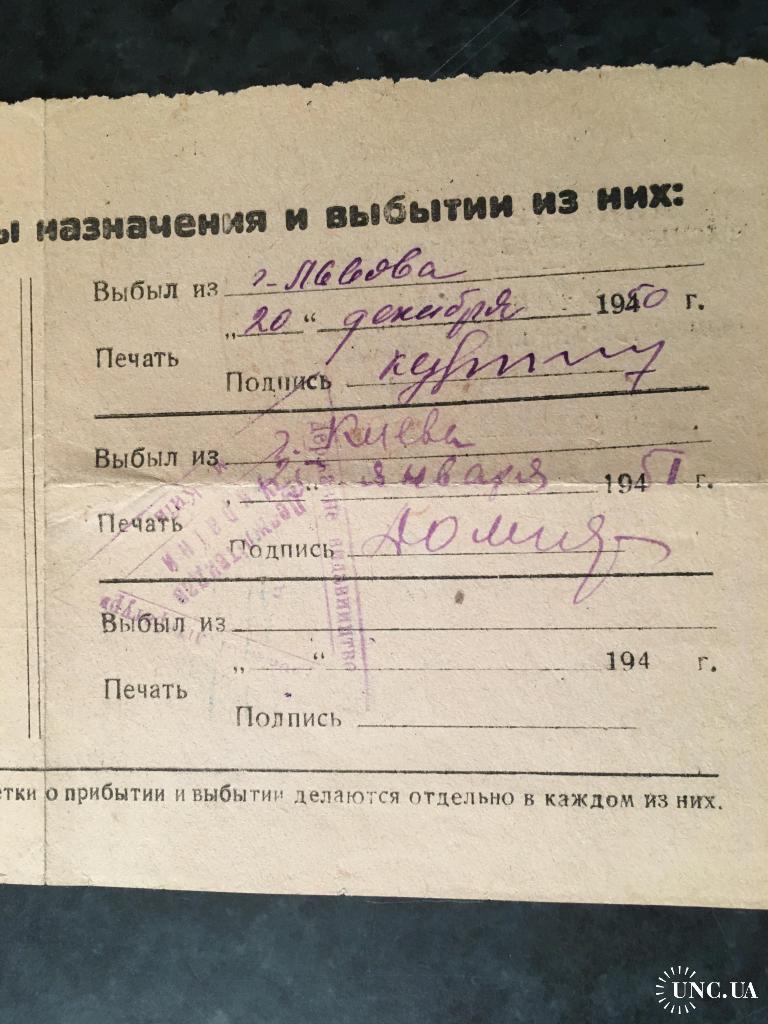 ы назначения и выбытии из них:
Выбыл из г. Львова
„20“ декабря 19450 г.
Печать
Подпись
Выбыл из г. Киева
„ “ января 19451 г.
Печать
Подпись
державне видавництво
Выбыл из
„ “ 194 г.
Печать
Подпись
етки о прибытии и выбытии делаются отдельно в каждом из них.
UNC.UA